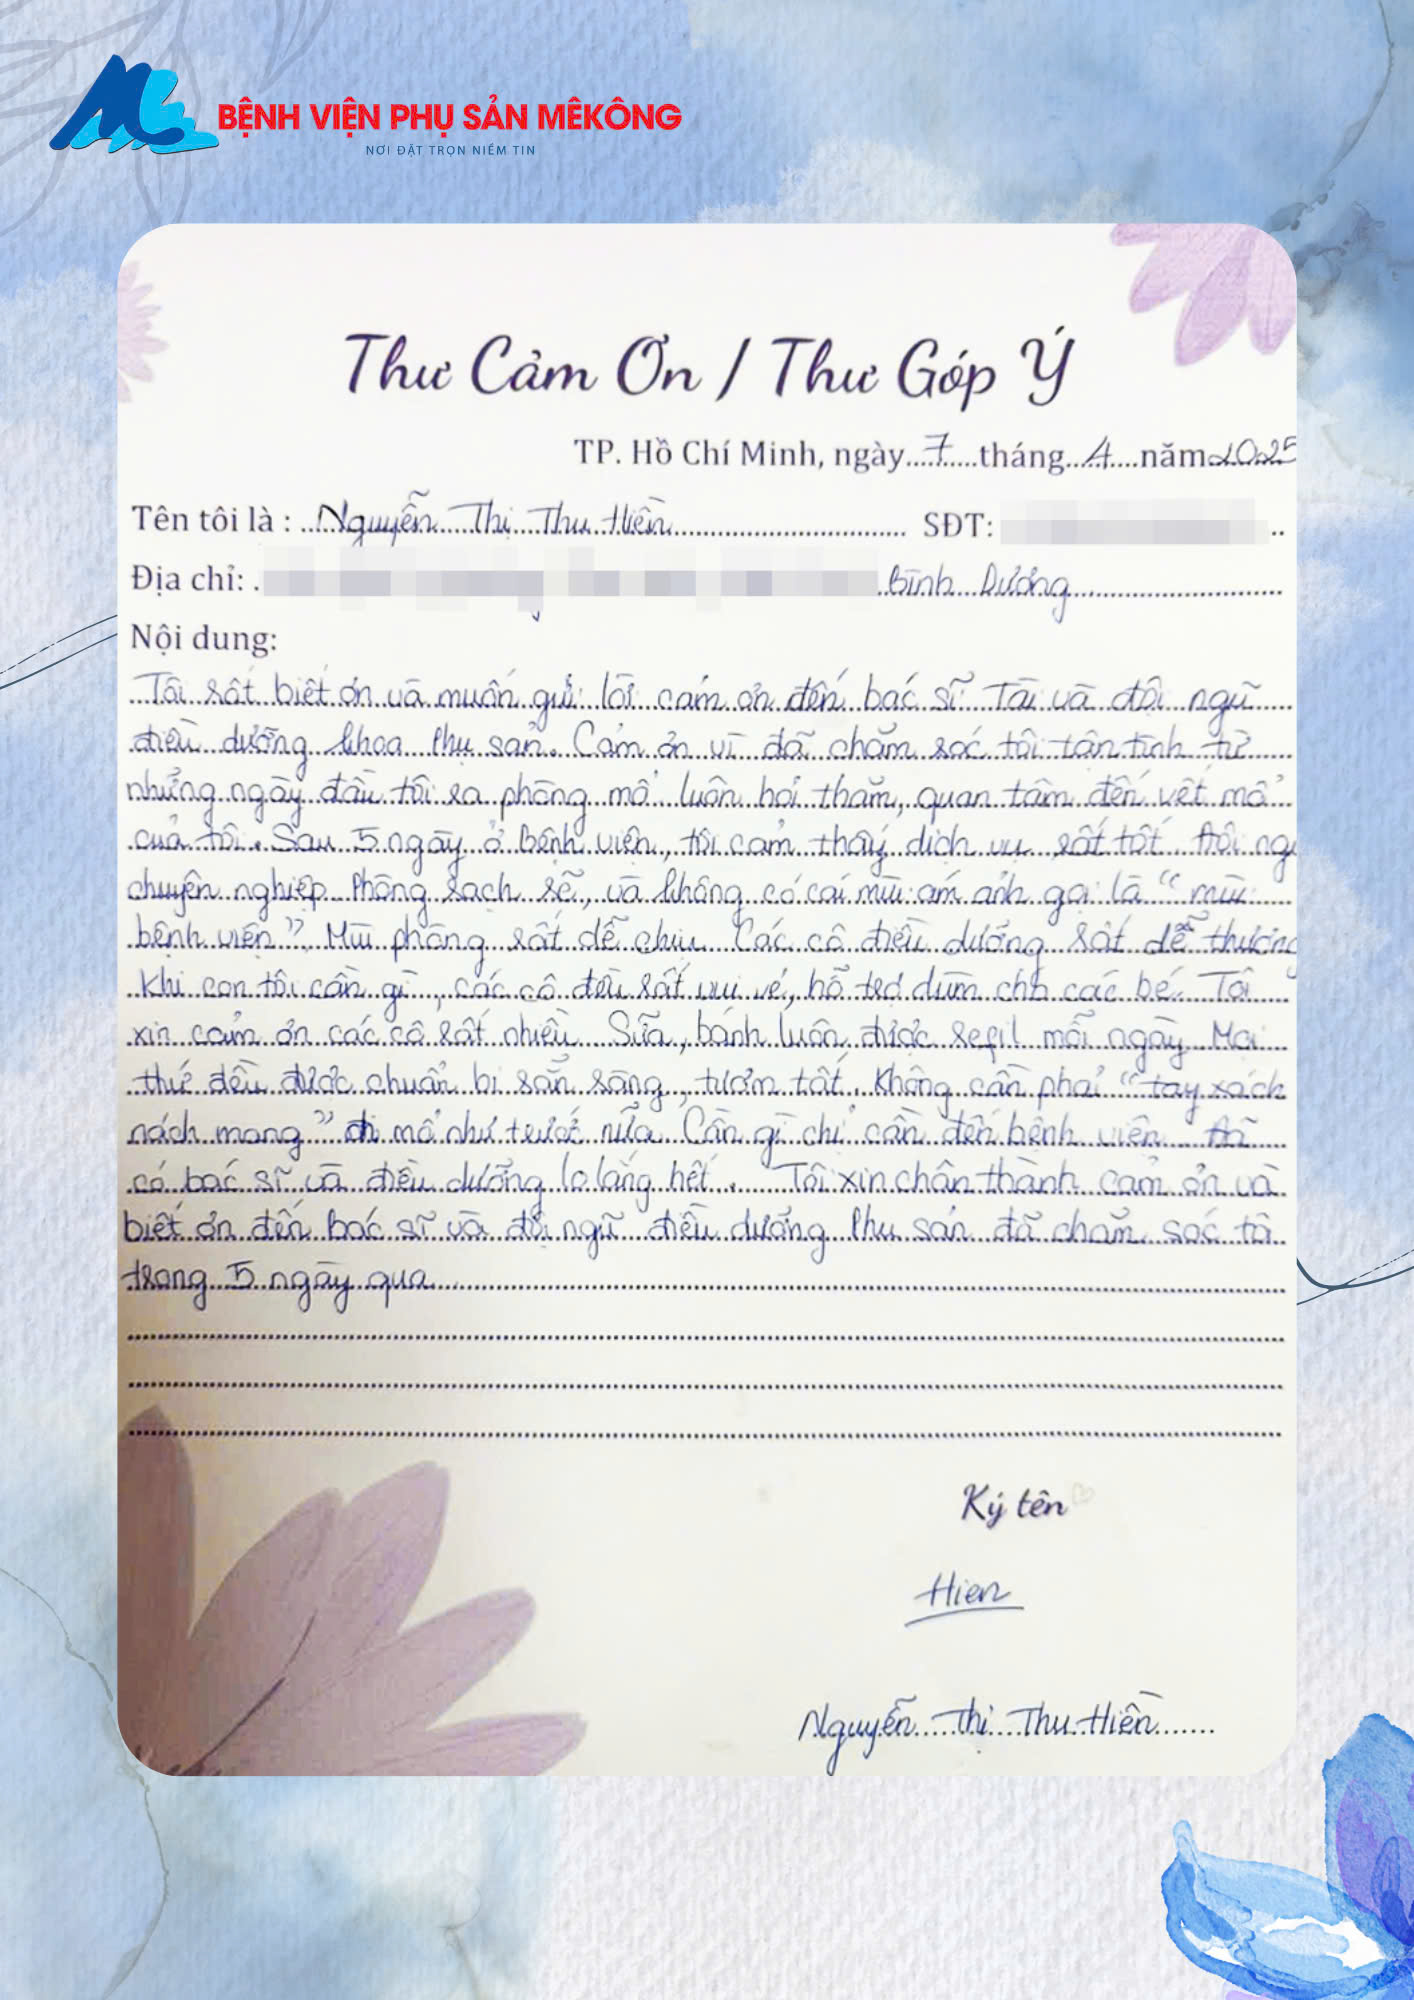 BỆNH VIỆN PHỤ SẢN MÊKÔNG
NƠI ĐẶT TRỌN NIỀM TIN
Thư Cảm Ơn / Thư Góp Ý
TP. Hồ Chí Minh, ngày 7 tháng 4 năm 2025
Tên tôi là : Nguyễn Thị Thu Hiền SĐT:
Địa chỉ: Bình Dương
Nội dung:
Tôi rất biết ơn và muốn gửi lời cám ơn đến bác sĩ Tài và đội ngũ
điều dưỡng khoa Phụ sản. Cảm ơn vì đã chăm sóc tôi tận tình từ
những ngày đầu tôi ra phòng mổ luôn hỏi thăm, quan tâm đến vết mổ
của tôi. Sau 5 ngày ở bệnh viện, tôi cảm thấy dịch vụ rất tốt. Đội ng
chuyên nghiệp. Phòng sạch sẽ, và không có cái mùi ám ảnh gọi là "mùi
bệnh viện". Mùi phòng rất dễ chịu. Các cô điều dưỡng rất dễ thương
Khi con tôi cần gì, các cô đều rất vui vẻ, hỗ trợ dùm cho các bé. Tôi
xin cảm ơn các cô rất nhiều. Sữa, bánh luôn được refil mỗi ngày. Mọi
thứ đều được chuẩn bị sẵn sàng, tươm tất. Không cần phải "tay xách
nách mang" đi mổ như trước nữa. Cần gì chỉ cần đến bệnh viện đã
có bác sĩ và điều dưỡng lo lắng hết. Tôi xin chân thành cảm ơn và
biết ơn đến bác sĩ và đội ngũ điều dưỡng Phụ sản đã chăm sóc tô
trong 5 ngày qua
Ký tên
Hien
Nguyễn Thị Thu Hiền